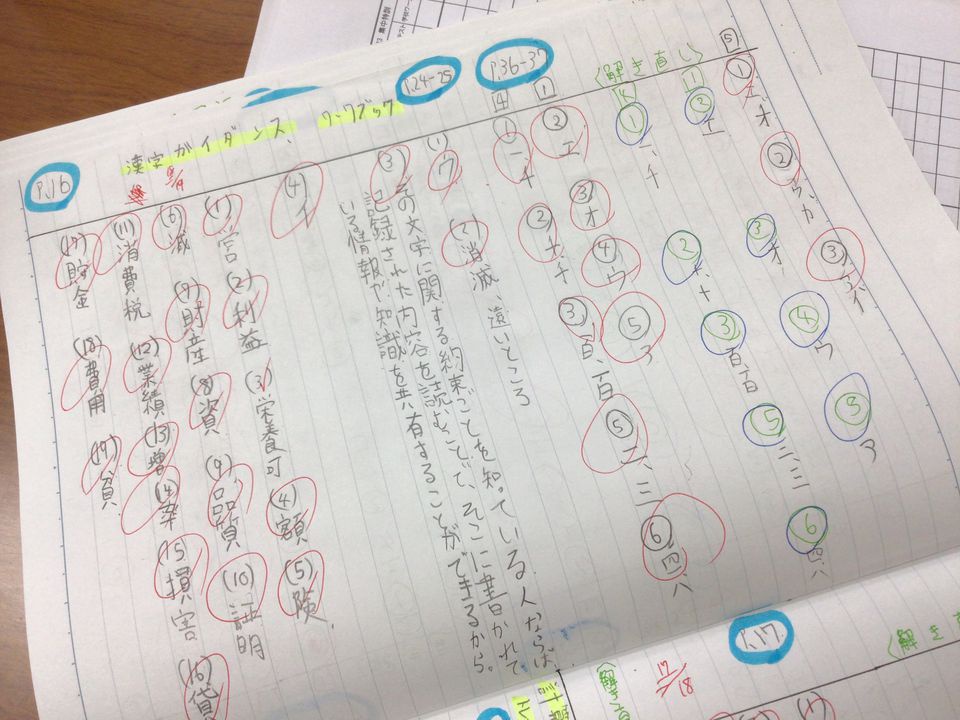 5 ① エ、オ ② ウ、カ ③
〈解き直し〉
1 ② エ ③ オ ④ ウ ⑤ ア
4 ① 一、千 ② ③ 百、百 ⑤ 二、三 ⑥ 四、八
P.36-37
1 ② エ ③ オ ④ ウ ⑤ ア
4 ① 一、千 ② ③ 百、百 ⑤ 二、三 ⑥ 四、八
P.24-25
ワークブック
(1) ウ (2) 消滅、遠いところ
(3) その文字に関する約束ごとを知っている人ならば、
記録された内容を読むことで、そこに書かれて
いる情報や知識を共有することができるから。
(4) イ
漢字ガイダンス
P.16
(1) 営 (2) 利益 (3) 栄養可 (4) 額 (5) 険
(6) 減 (7) 財産 (8) 資 (9) 品質 (10) 証明
(11) 消費税 (12) 業績 (13) 増 (14) (15) 損害 (16) 貸
(17) 貯金 (18) 費用 (19) 貧
P.17
〈解き直
17/18